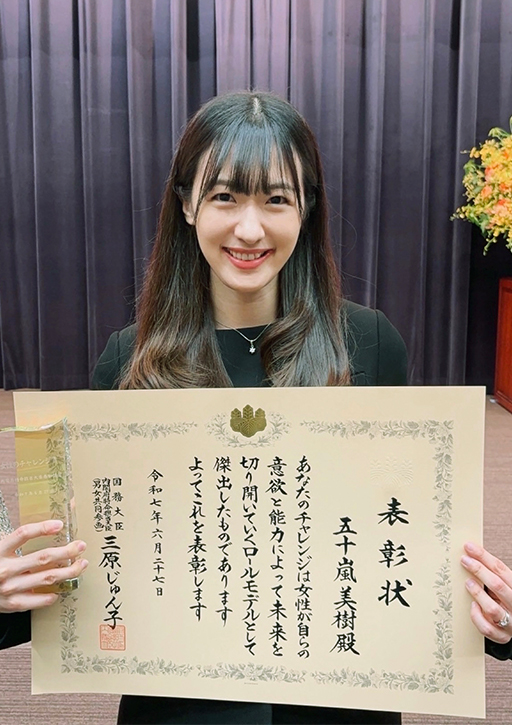 表彰状
五十嵐美樹殿
あなたのチャレンジは女性が自らの
意欲と能力によって未来を
切り開いていくロールモデルとして
傑出したものであります
よってこれを表彰します
令和七年六月二十七日
国務大臣
内閣府特命担当大臣
(男女共同参画)
三原じゅん子